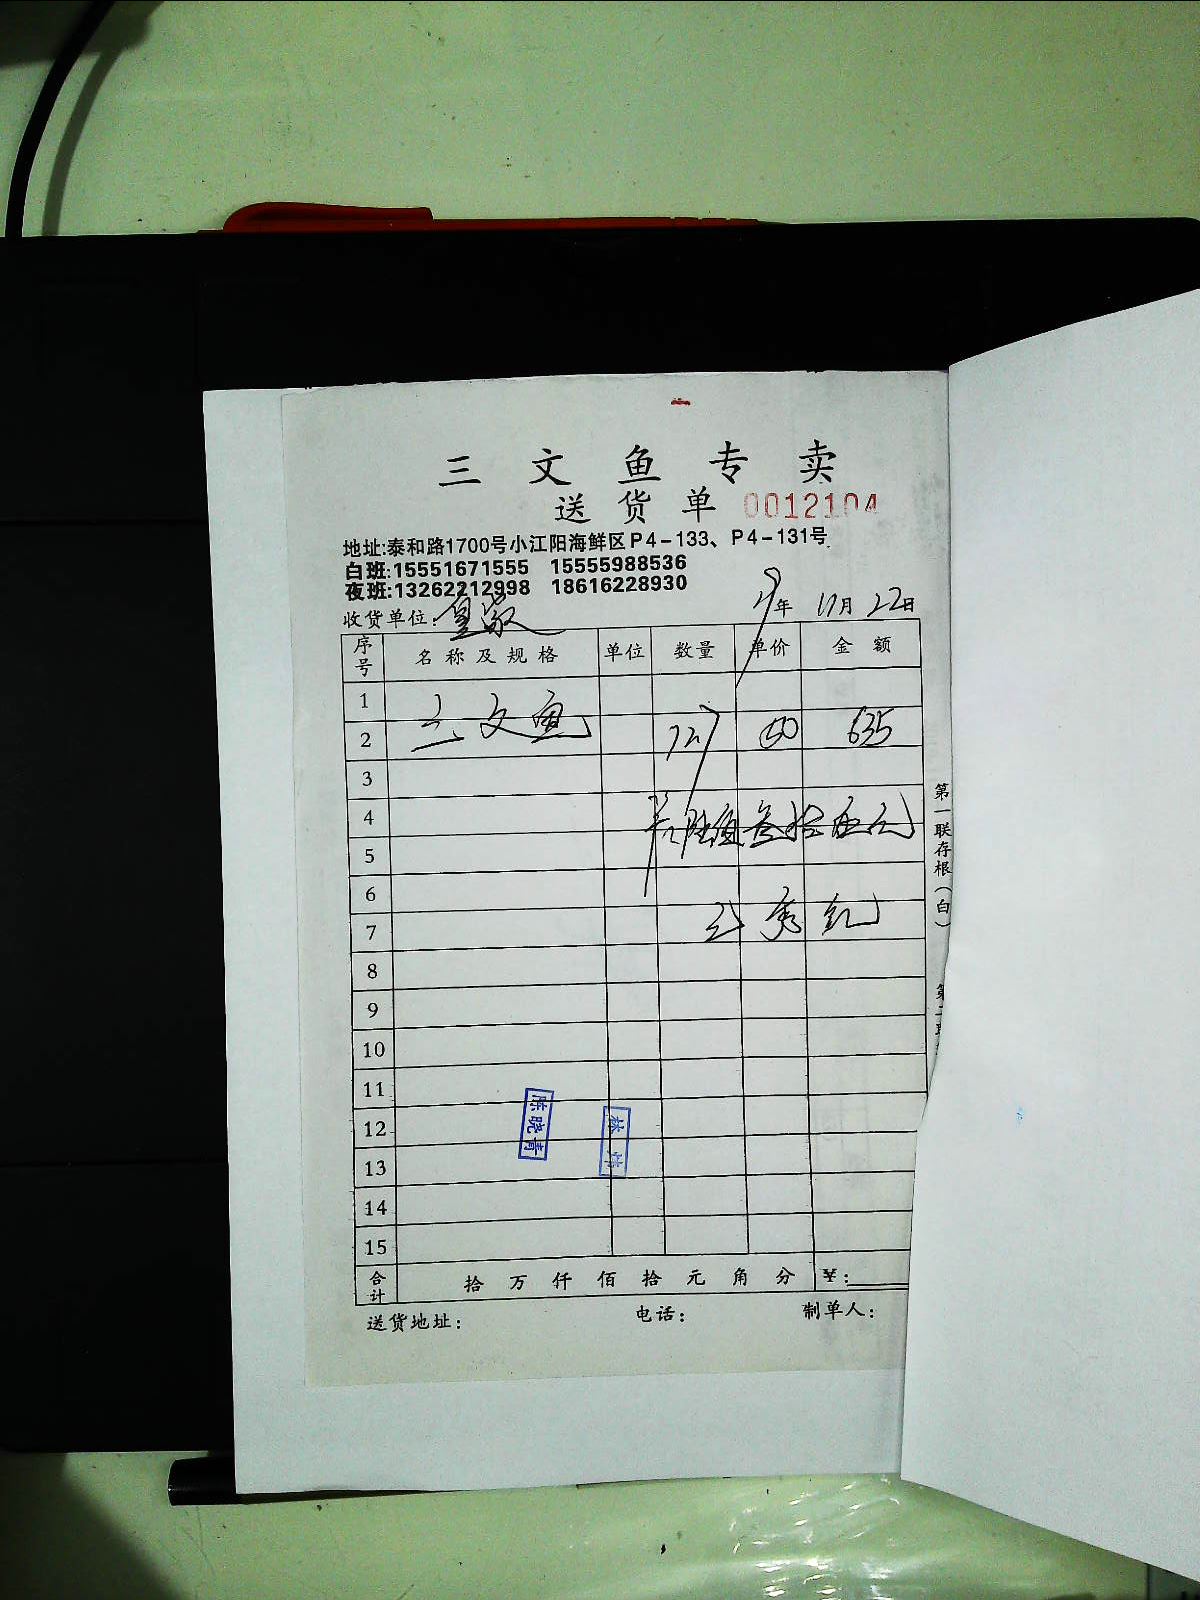 三文鱼专卖
送货单 0012104
地址:泰和路1700号小江阳海鲜区P4-133、P4-131号
白班:15551671555 15555988536
夜班:13262212998 18616228930
收货单位: 皇家 年 11月 22日
序号 名称及规格 单位 数量 单价 金额
1
2 三文鱼 127 50 635
3
4
5
6
7
8
9
10
11
12
13
14
15
合计 拾 万 仟 佰 拾 元 角 分 ¥:
送货地址: 电话: 制单人:
第一联存根(白)
陈晓青
林